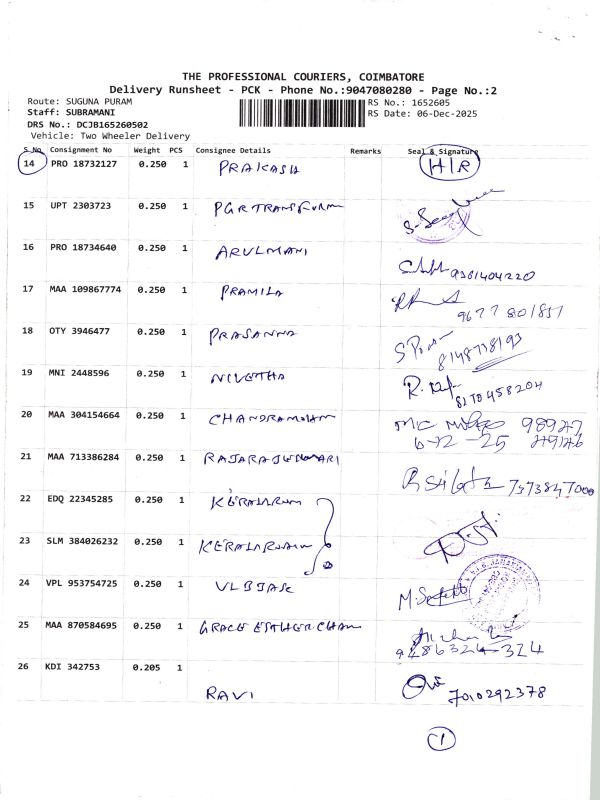 THE PROFESSIONAL COURIERS, COIMBATORE
Delivery Runsheet - PCK - Phone No.:9047080280 - Page No.:2
Route: SUGUNA PURAM RS No.: 1652605
Staff: SUBRAMANI RS Date: 06-Dec-2025
DRS No.: DCJB165260502
Vehicle: Two Wheeler Delivery
S No. Consignment No Weight PCS Consignee Details Remarks Seal & Signature
14 PRO 18732127 0.250 1 PRAKASH H/R
15 UPT 2303723 0.250 1 PGR TRANSFORM
16 PRO 18734640 0.250 1 ARULMANI 9361404220
17 MAA 109867774 0.250 1 PRAMILA 9677801857
18 OTY 3946477 0.250 1 PRASANNA 8148778193
19 MNI 2448596 0.250 1 NIVETHA
20 MAA 304154664 0.250 1 6-12-25
21 MAA 713386284 0.250 1
22 EDQ 22345285 0.250 1
23 SLM 384026232 0.250 1
24 VPL 953754725 0.250 1 VLBJASC
25 MAA 870584695 0.250 1 GRACE ESTHER CHAN 9486324324
26 KDI 342753 0.205 1 RAVI 7010292378
1